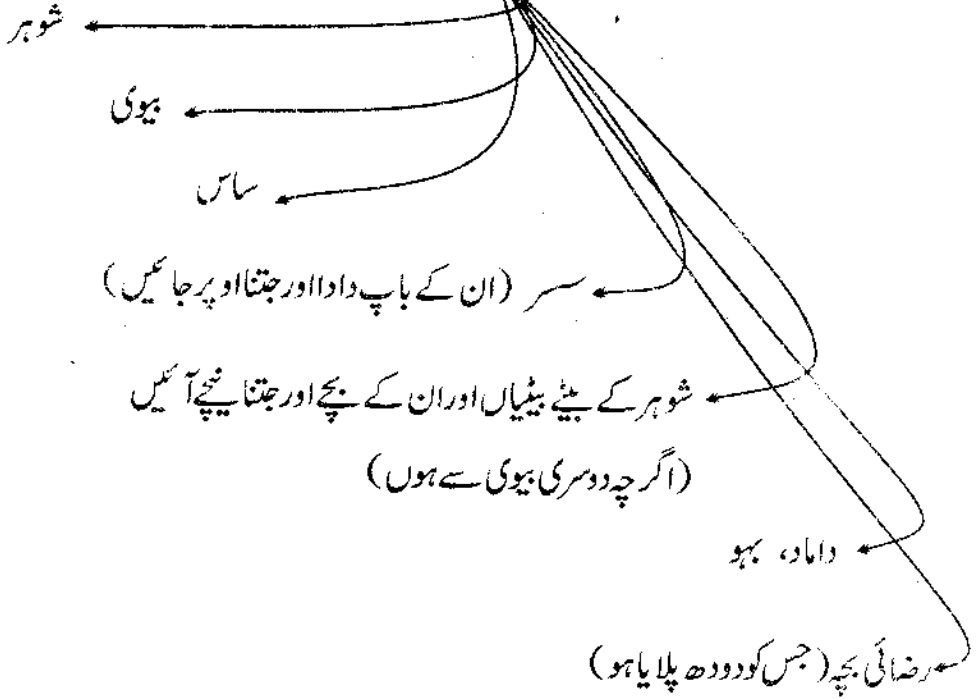 شوہر
بیوی
ساس
سسر (ان کے باپ دادا اور جتنا اوپر جائیں)
شوہر کے بیٹے بیٹیاں اور ان کے بچے اور جتنا نیچے آئیں
(اگرچہ دوسری بیوی سے ہوں)
داماد، بہو
رضائی بچہ (جس کو دودھ پلایا ہو)